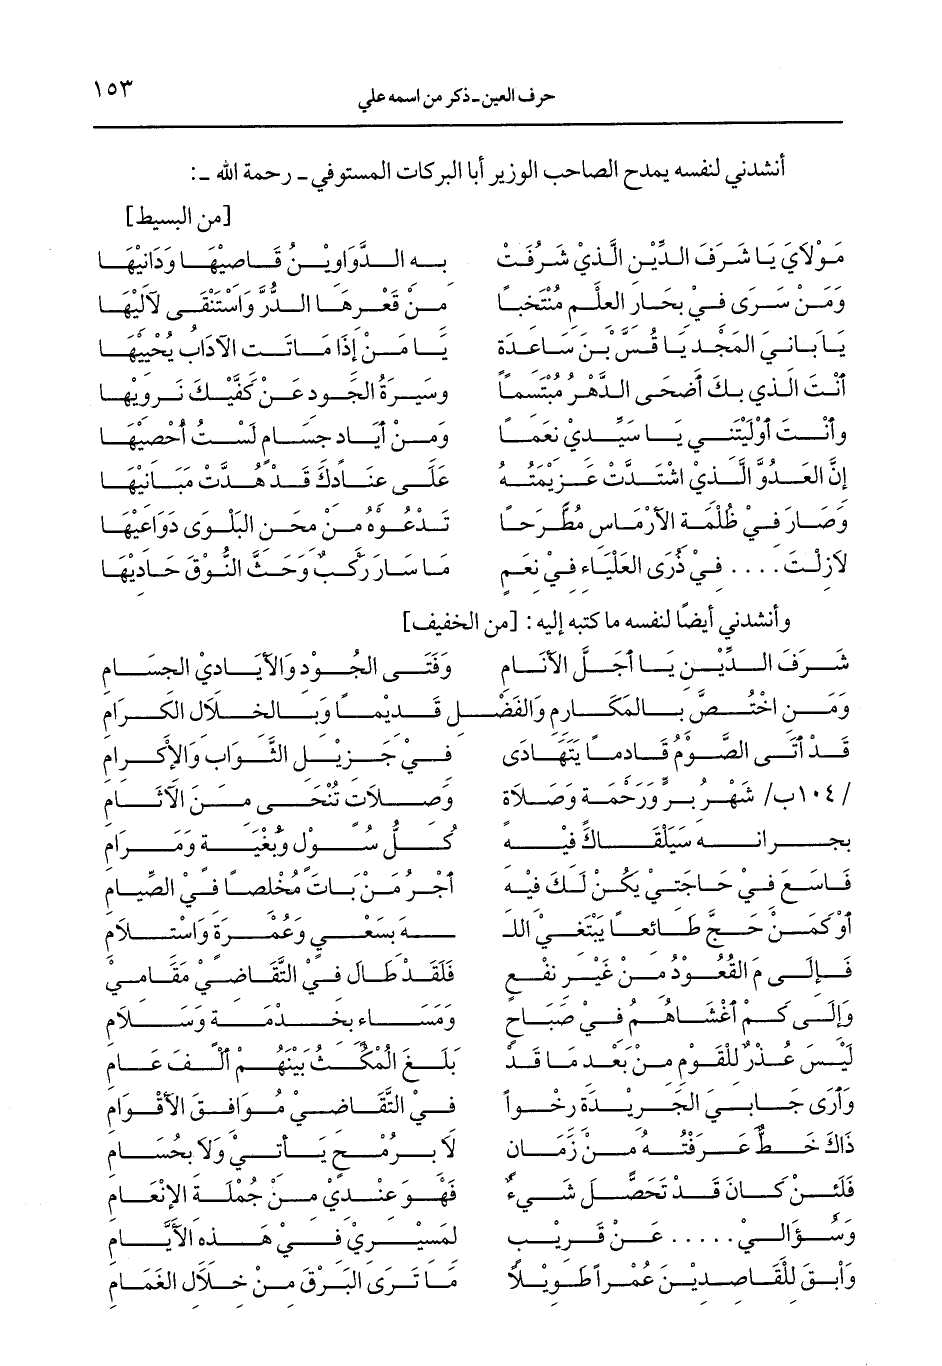 حرف العين ـ ذكر من اسمه علي ١٥٣
أنشدني لنفسه يمدح الصاحب الوزير أبا البركات المستوفي ـ رحمة الله ـ:
[من البسيط]
مَوْلَايَ يَا شَرَفَ الدِّيْنِ الَّذِيْ شَرُفَتْ بِهِ الدَّوَاوِيْنُ قَاصِيْهَا وَدَانِيْهَا
وَمَنْ سَرَى فِيْ بِحَارِ العِلْمِ مُنْتَخِبًا مِنْ قَعْرِهَا الدُّرَّ وَاسْتَنْقَى لآلِيْهَا
يَا بَانِيَ المَجْدِ يَا قُسَّ بْنَ سَاعِدَةٍ يَا مَنْ إِذَا مَاتَتِ الآدَابُ يُحْيِيْهَا
أَنْتَ الَّذِي بِكَ أَضْحَى الدَّهْرُ مُبْتَسِمًا وَسِيْرَةُ الجُودِ عَنْ كَفَّيْكَ نَرْوِيْهَا
وَأَنْتَ أَوْلَيْتَنِي يَا سَيِّدِيْ نِعَمًا وَمِنْ أَيَادٍ جِسَامٍ لَسْتُ أُحْصِيْهَا
إِنَّ العَدُوَّ الَّذِيْ اشْتَدَّتْ عَزِيْمَتُهُ عَلَى عِنَادِكَ قَدْ هُدَّتْ مَبَانِيْهَا
وَصَارَ فِيْ ظُلْمَةِ الأَرْمَاسِ مُطَّرَحًا تَدْعُوهُ مِنْ مِحَنِ البَلْوَى دَوَاعِيْهَا
لَازِلْتَ .... فِيْ ذُرَى العَلْيَاءِ فِيْ نِعَمٍ مَا سَارَ رَكْبٌ وَحَثَّ النُّوقَ حَادِيْهَا
وأنشدني أيضًا لنفسه ما كتبه إليه: [من الخفيف]
شَرَفَ الدِّيْنِ يَا أَجَلَّ الأَنَامِ وَفَتَى الجُودِ وَالأَيَادِيْ الجِسَامِ
وَمَنِ اخْتُصَّ بِالمَكَارِمِ وَالفَضْلِ قَدِيْمًا وَبِالخِلَالِ الكِرَامِ
قَدْ أَتَى الصَّوْمُ قَادِمًا يَتَهَادَى فِيْ جَزِيْلِ الثَّوَابِ وَالإِكْرَامِ
/١٠٤ب/ شَهْرُ بِرٍّ وَرَحْمَةٍ وَصَلَاةٍ وَصِلَاتٍ تُنْحَى مِنَ الآثَامِ
سَيَلْقَاكَ فِيْهِ كُلُّ سُوْلٍ وَبُغْيَةٍ وَمَرَامِ
فَاسْعَ فِيْ حَاجَتِيْ يَكُنْ لَكَ فِيْهِ أَجْرُ مَنْ بَاتَ مُخْلِصًا فِيْ الصِّيَامِ
أَوْ كَمَنْ حَجَّ طَائِعًا يَبْتَغِيْ اللـ ـهَ بِسَعْيٍ وَعُمْرَةٍ وَاسْتِلَامِ
فَإِلَى مَ القُعُودُ مِنْ غَيْرِ نَفْعٍ فَلَقَدْ طَالَ فِيْ التَّقَاضِيْ مَقَامِيْ
وَإِلَى كَمْ أَغْشَاهُمُ فِيْ صَبَاحٍ وَمَسَاءٍ بِخِدْمَةٍ وَسَلَامِ
لَيْسَ عُذْرٌ لِلْقَوْمِ مِنْ بَعْدِ مَا قَدْ بَلَغَ المُكْثُ بَيْنَهُمْ أَلْفَ عَامِ
وَأَرَى جَابِيَ الجَرِيْدَةِ رَخْوًا فِيْ التَّقَاضِيْ مُوَافِقَ الأَقْوَامِ
ذَاكَ خَطٌّ عَرَفْتُهُ مِنْ زَمَانٍ لَا بِرُمْحٍ يَأْتِيْ وَلَا بِحُسَامِ
فَلَئِنْ كَانَ قَدْ تَحَصَّلَ شَيْءٌ فَهْوَ عِنْدِيْ مِنْ جُمْلَةِ الإِنْعَامِ
وَسُؤَالِيْ ..... عَنْ قَرِيْبٍ لِمَسِيْرِيْ فِيْ هَذِهِ الأَيَّامِ
وَابْقَ لِلْقَاصِدِيْنَ عُمْرًا طَوِيْلًا مَا تَرَى البَرْقَ مِنْ خِلَالِ الغَمَامِ